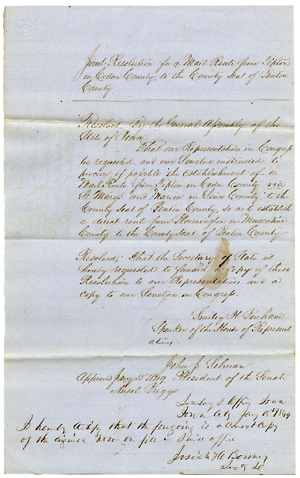 Joint Resolution for a Mail Route from Tipton
in Cedar County, to the County Seat of Benton
County
Resolved By the General Assembly of the
State of Iowa,
That our Representatives in Congress
be requested, and our Senators instructed to
procure if possible the establishment of a
Mail Route from Tipton in Cedar County via
St. Mary's and Marion in Linn County, to the
County Seat of Benton County, also to establish
a direct route from Bloomington in Muscatine
County to the County Seat of Benton County
Resolved, That the Secretary of State is
hereby requested to forward a copy of these
Resolutions to our Representatives and a
copy to our Senators in Congress.
Smiley H. Bonham
Speaker of the House of Represent
atives.
John J. Selman
Approved Jany 15 1849 President of the Senate
Ansel Briggs
Secretary's Office Iowa
Iowa City Jany 1849
I hereby certify that the foregoing is a correct copy
of the original now on file in said office
Josiah H. Bonney
Secy